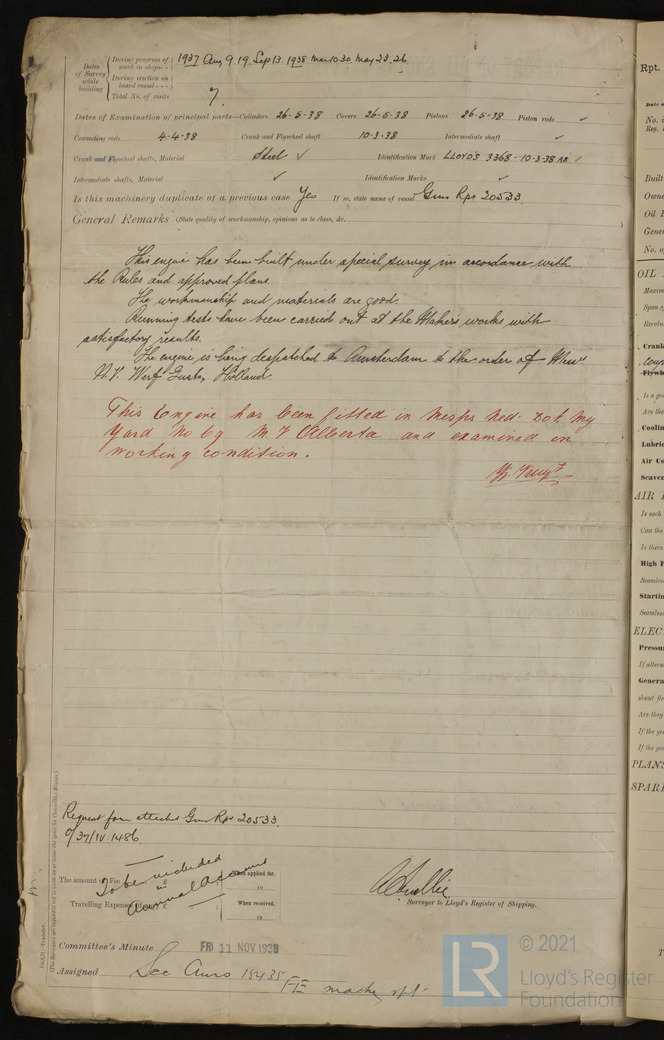 Dates of Survey while building
During progress of work in shops - - 1937 Aug 9. 19. Sep 13. 1938 Mar 10 30. May 23. 26.
During erection on board vessel - - -
Total No. of visits 7.
Dates of Examination of principal parts—Cylinders 26-5-38 Covers 26-5-38 Pistons 26-5-38 Piston rods ✓
Connecting rods 4-4-38 Crank and Flywheel shaft 10-3-38 Intermediate shaft ✓
Crank and Flywheel shafts, Material Steel ✓ Identification Mark LLOYDS 3368-10-3-38 AB. ✓
Intermediate shafts, Material ✓ Identification Marks ✓
Is this machinery duplicate of a previous case Yes If so, state name of vessel Gmn Rpt 20533.
General Remarks (State quality of workmanship, opinions as to class, &c.
This engine has been built under special survey in accordance with
the Rules and approved plans.
The workmanship and materials are good.
Running tests have been carried out at the Makers works with
satisfactory results.
The engine is being despatched to Amsterdam to the order of Messrs
N.V. Werf Gusto, Holland.
This Engine has been fitted in Messrs Ned. Dok My
Yard No 69 M.T Alberta and examined in
working condition.
Request form attached Gmn Rpt 20533.
O/37/IV.1486.
The amount of Fee £
To be included
in
Annual Account
When applied for,
19
Travelling Expenses £
When received,
19
Surveyor to Lloyd's Register of Shipping.
Committee's Minute FRI 11 NOV 1938
Assigned See Ams 15435
FE machy rpt.
© 2021
LR
Lloyd's Register
Foundation
Rpt.
OIL
AIR
ELEC
PLANS
SPAR